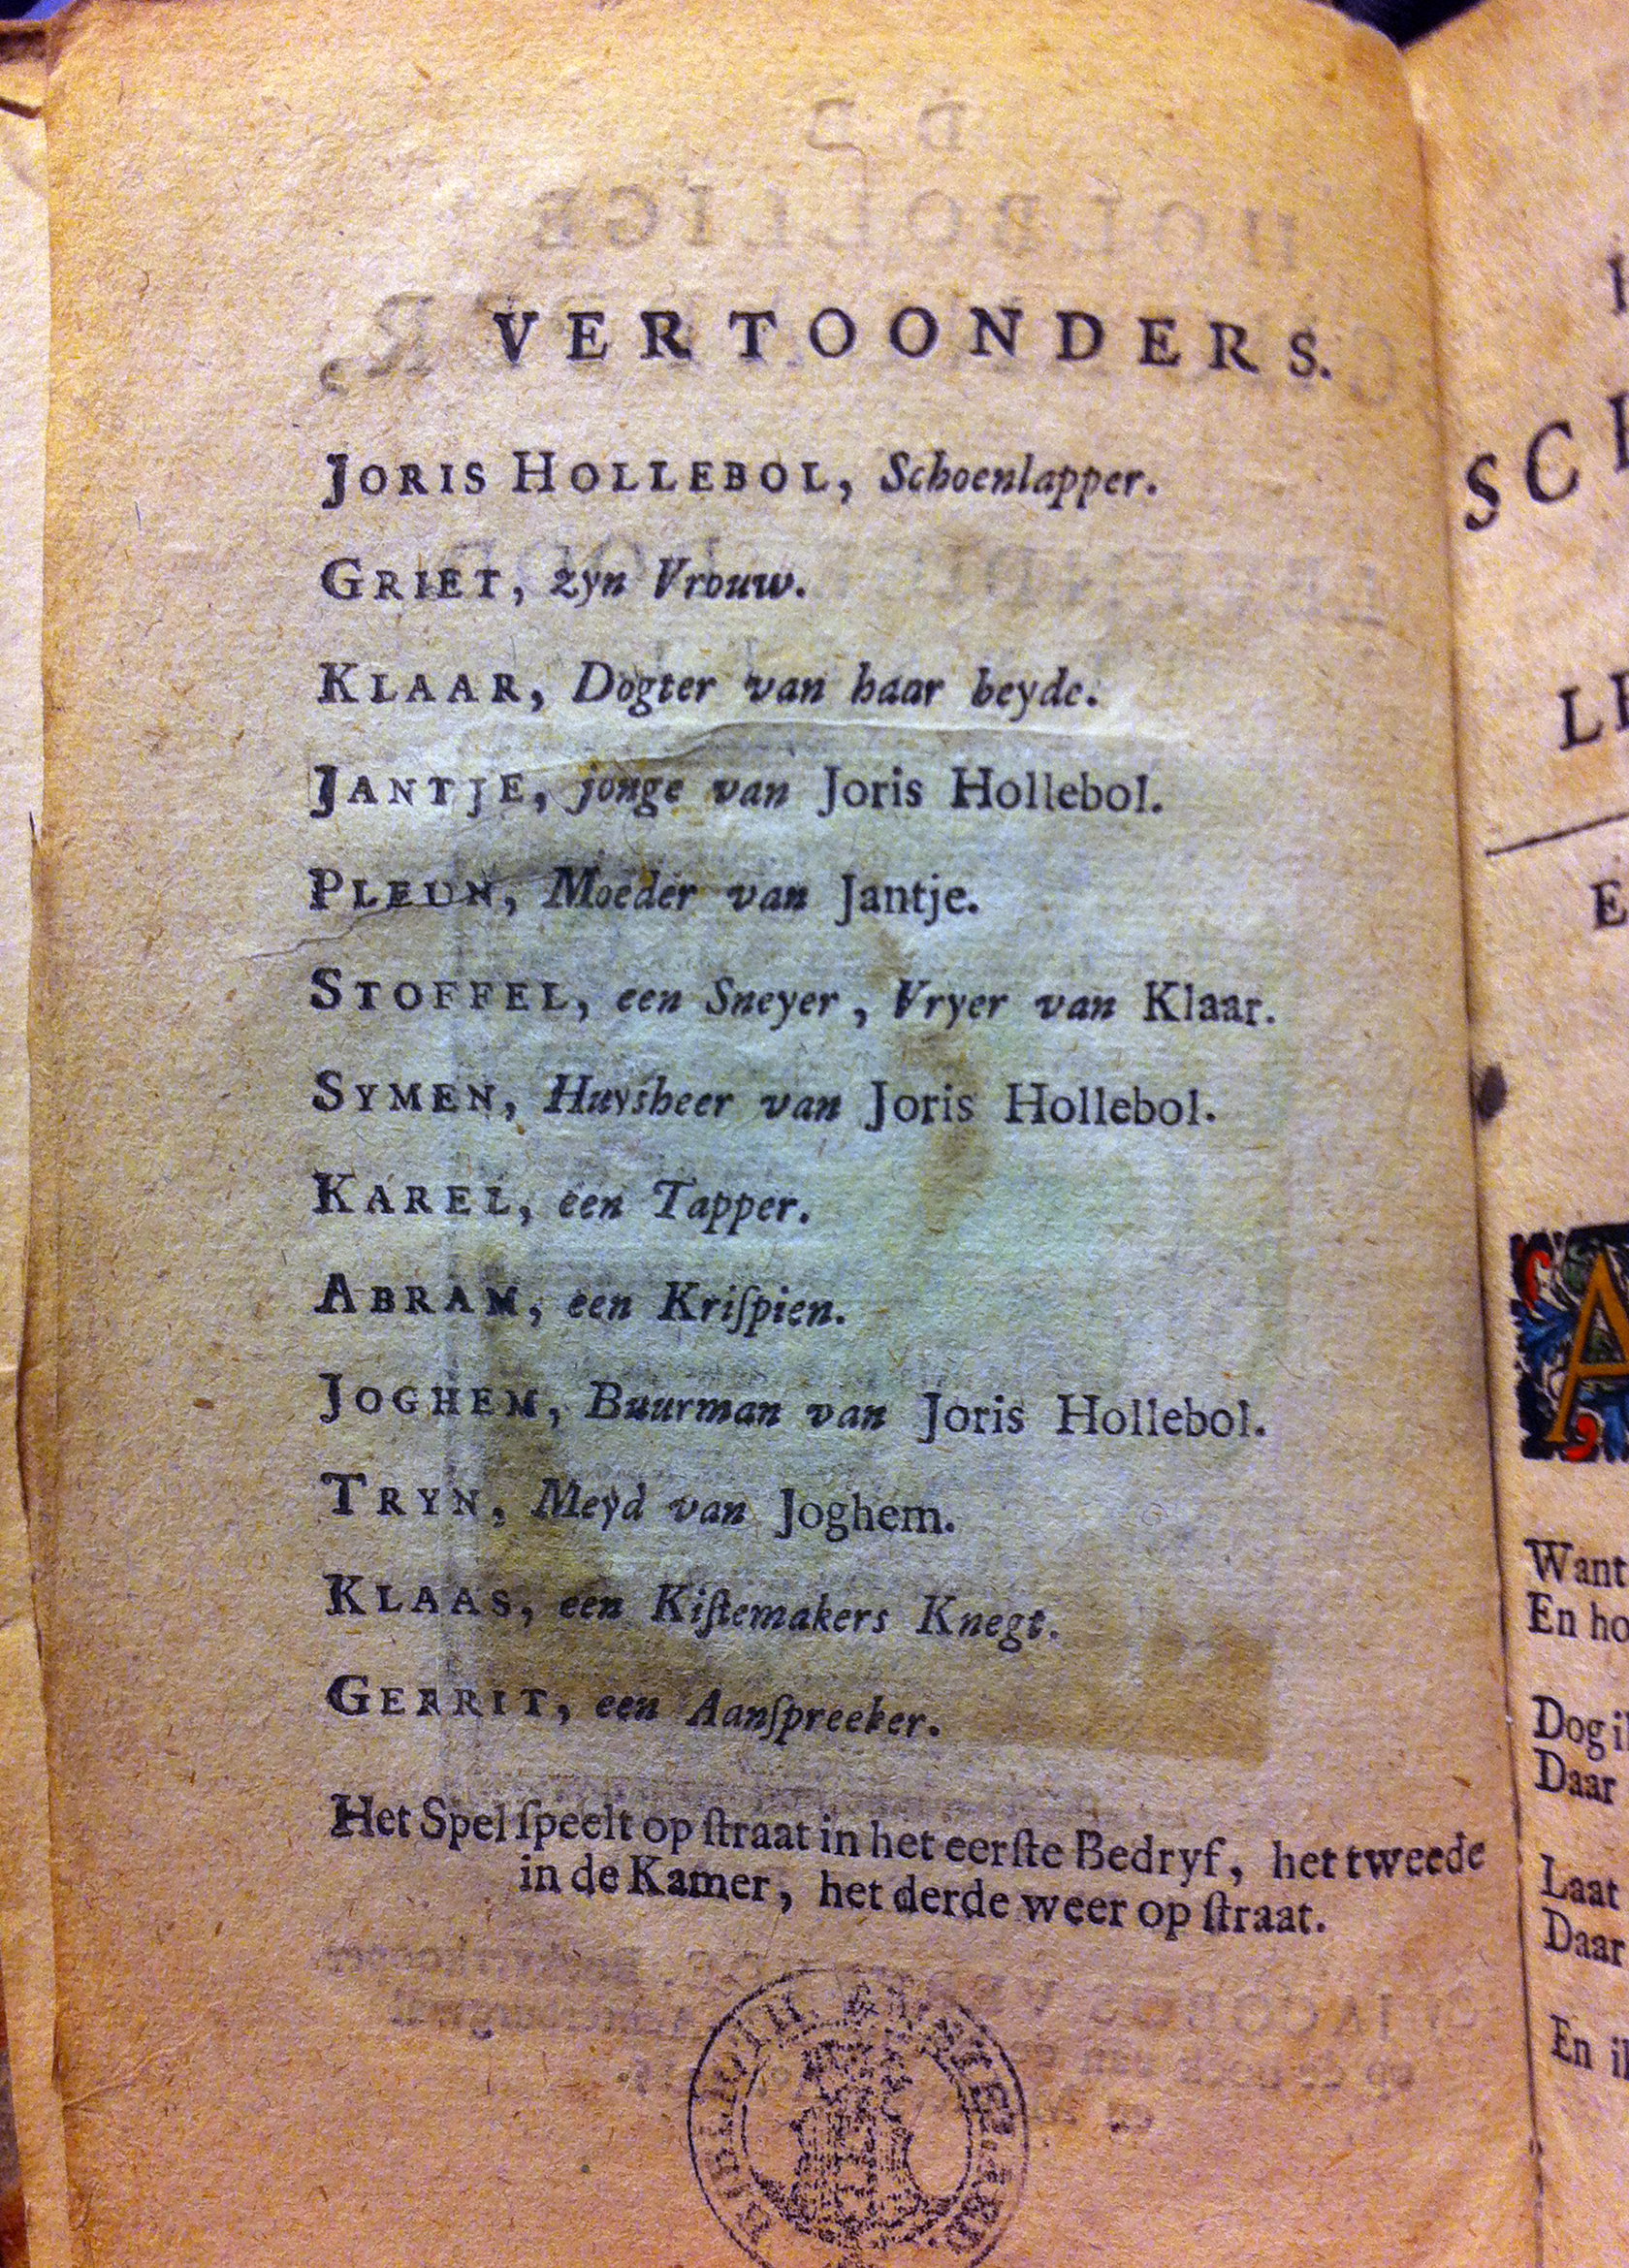 VERTOONDERS.
JORIS HOLLEBOL, Schoenlapper.
GRIET, zyn Vrouw.
KLAAR, Dogter van haar beyde.
JANTJE, jonge van Joris Hollebol.
PLEUN, Moeder van Jantje.
STOFFEL, een Sneyer, Vryer van Klaar.
SYMEN, Huysheer van Joris Hollebol.
KAREL, een Tapper.
ABRAM, een Kriſpien.
JOGHEM, Buurman van Joris Hollebol.
TRYN, Meyd van Joghem.
KLAAS, een Kiſtemakers Knegt.
GERRIT, een Aanſpreeker.
Het Spel ſpeelt op ſtraat in het eerſte Bedryf, het tweede
in de Kamer, het derde weer op ſtraat.
A
Want
En
Dog
Daar
Laat
Daar
En